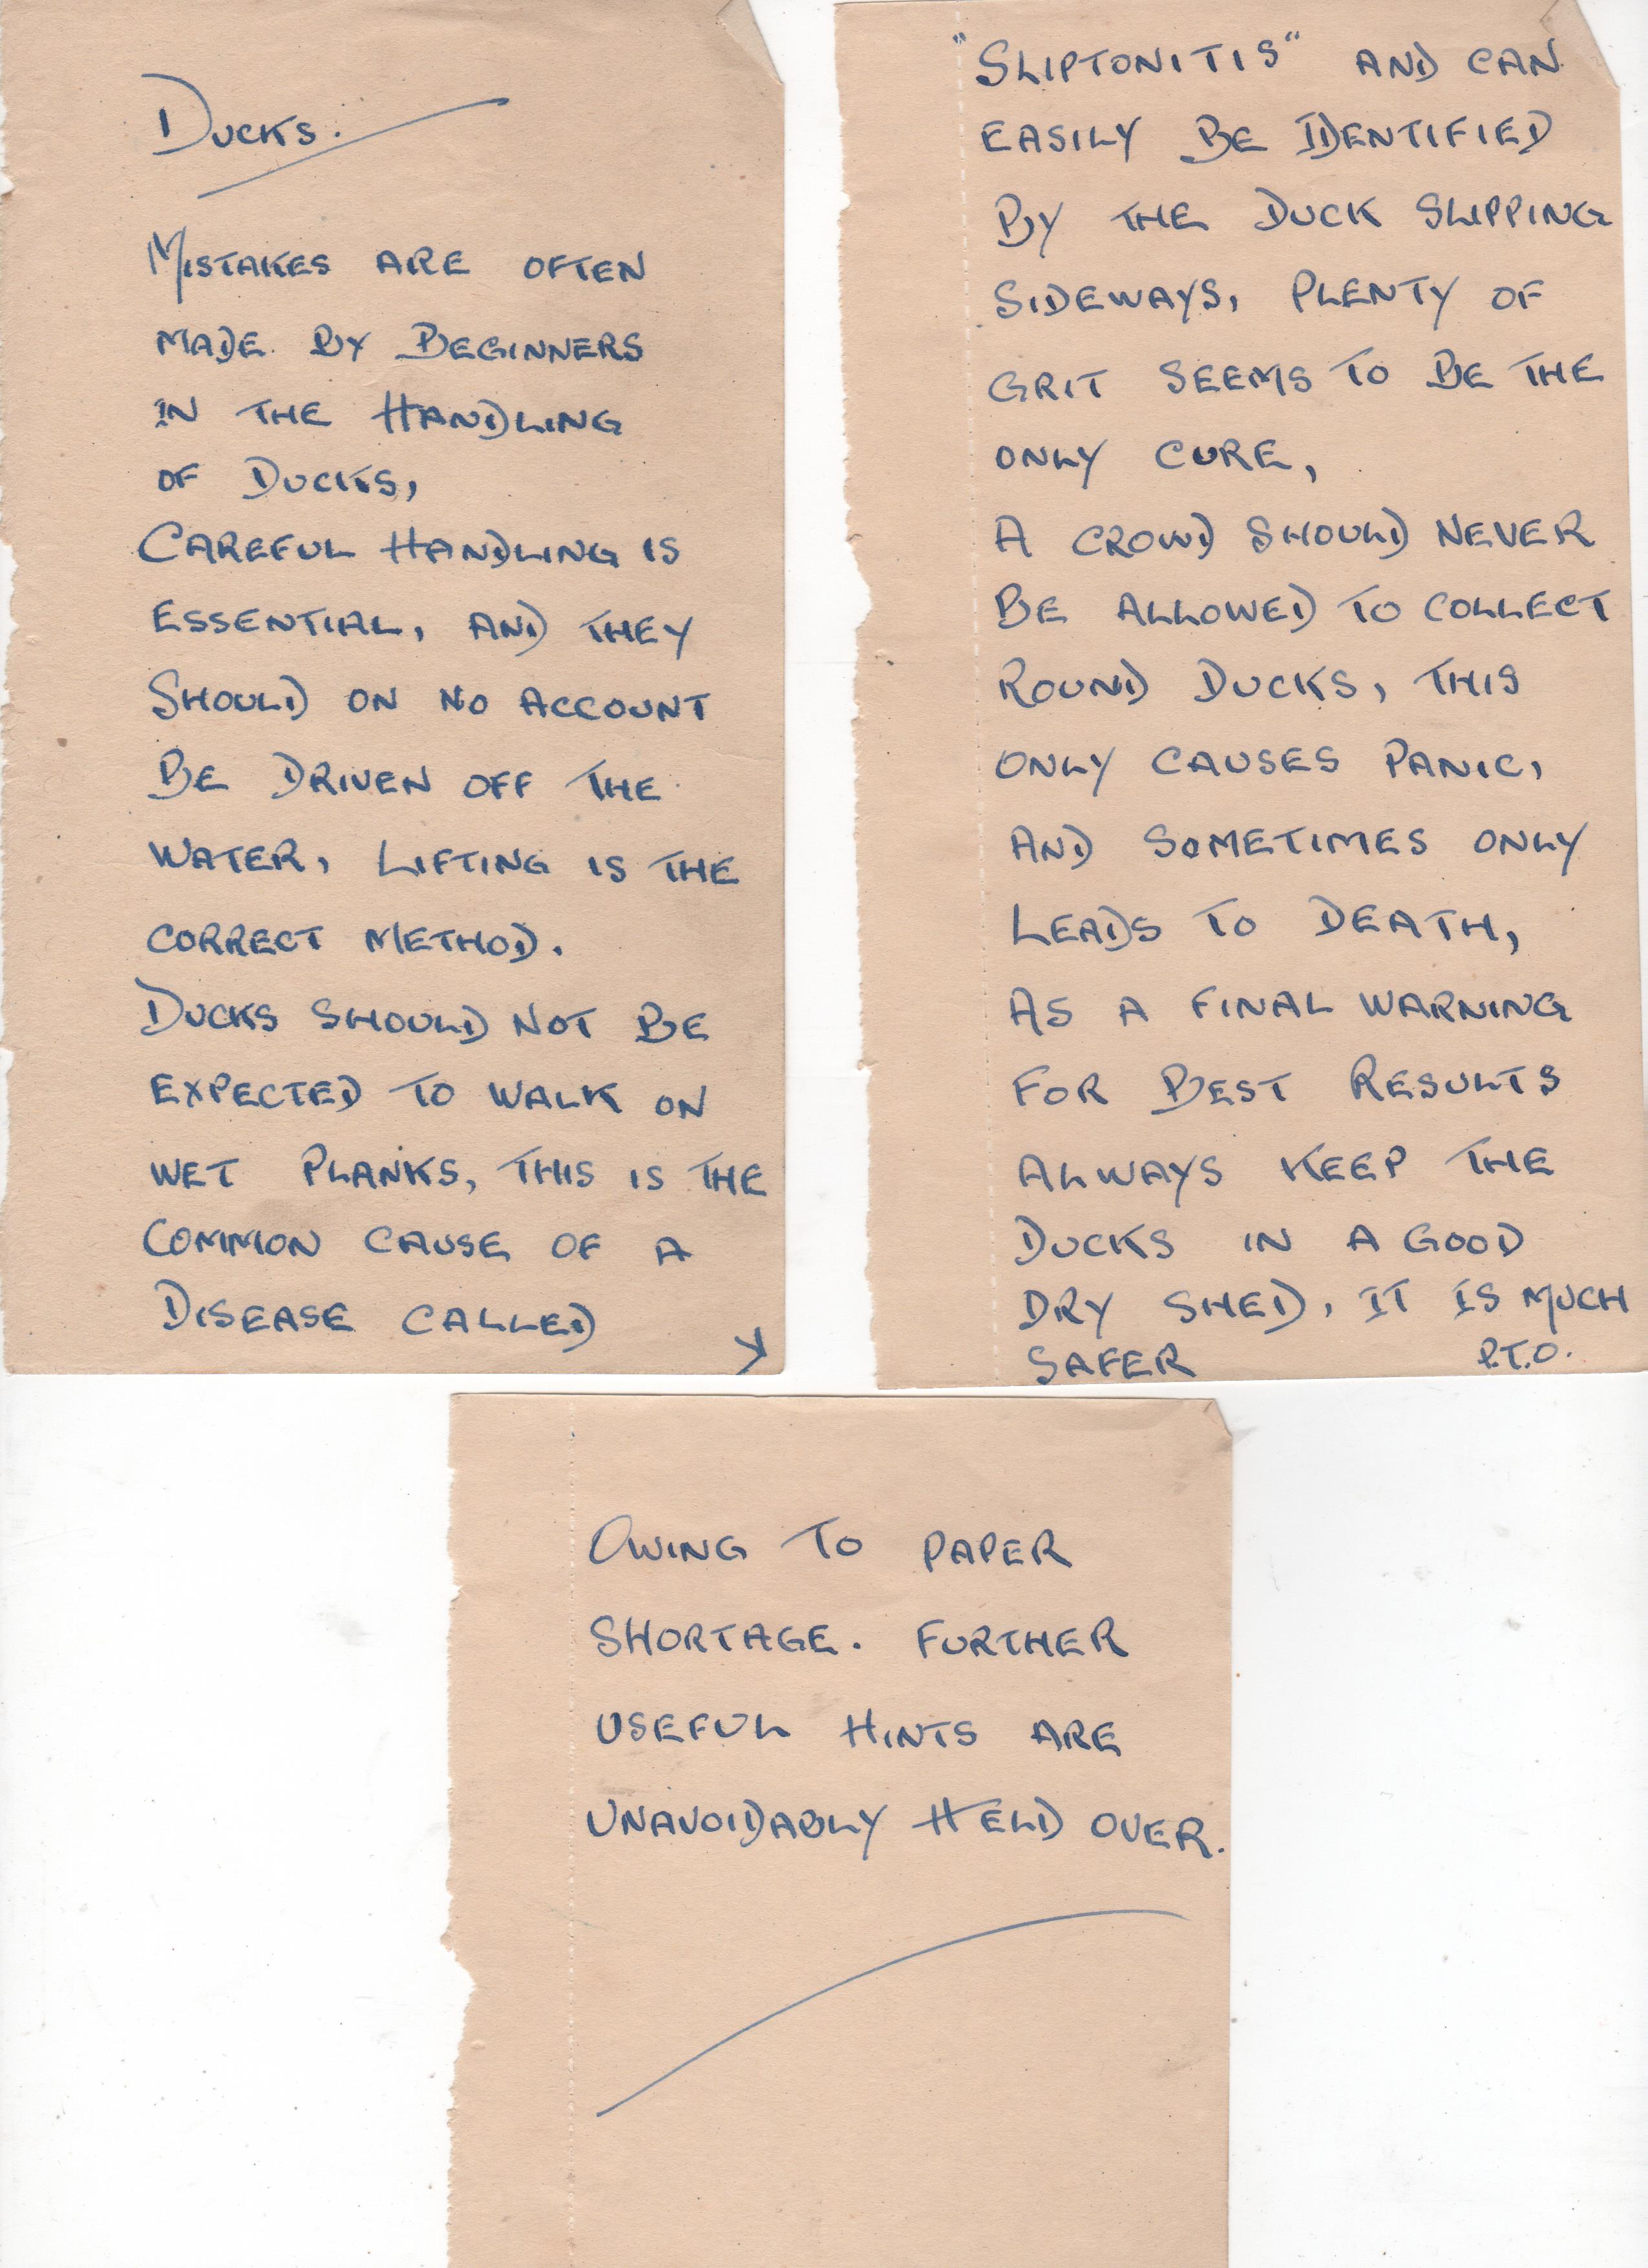 DUCKS.
MISTAKES ARE OFTEN
MADE BY BEGINNERS
IN THE HANDLING
OF DUCKS,
CAREFUL HANDLING IS
ESSENTIAL, AND THEY
SHOULD ON NO ACCOUNT
BE DRIVEN OFF THE
WATER, LIFTING IS THE
CORRECT METHOD.
DUCKS SHOULD NOT BE
EXPECTED TO WALK ON
WET PLANKS, THIS IS THE
COMMON CAUSE OF A
DISEASE CALLED
"SLIPTONITIS" AND CAN
EASILY BE IDENTIFIED
BY THE DUCK SLIPPING
SIDEWAYS, PLENTY OF
GRIT SEEMS TO BE THE
ONLY CURE,
A CROWD SHOULD NEVER
BE ALLOWED TO COLLECT
ROUND DUCKS, THIS
ONLY CAUSES PANIC,
AND SOMETIMES ONLY
LEADS TO DEATH,
AS A FINAL WARNING
FOR BEST RESULTS
ALWAYS KEEP THE
DUCKS IN A GOOD
DRY SHED, IT IS MUCH
SAFER P.T.O.
OWING TO PAPER
SHORTAGE. FURTHER
USEFUL HINTS ARE
UNAVOIDABLY HELD OVER.